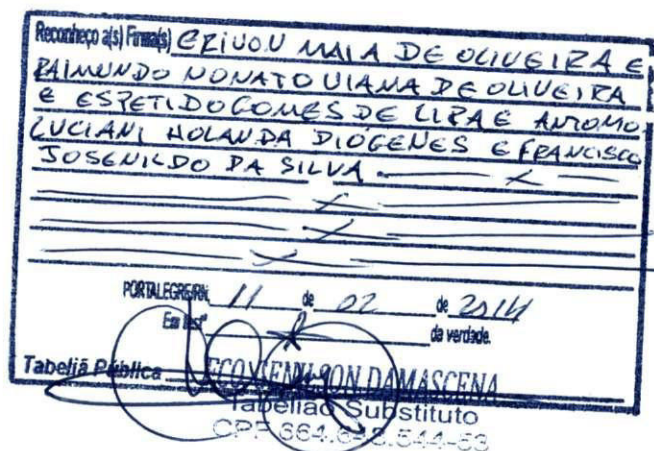 Reconheço a(s) Firma(s) ERIVON MAIA DE OLIVEIRA E
RAIMUNDO NONATO VIANA DE OLIVEIRA
E ESPETIDO GOMES DE LIRA E ANTOMO
LUCIANI HOLANDA DIÓGENES E FRANCISCO
JOSENILDO DA SILVA.
PORTALEGRE/RN, 11 de 02 de 2014
Em testº da verdade.
Tabeliã Pública DAMASCENA
Tabelião Substituto
CPF 664.643.544-53